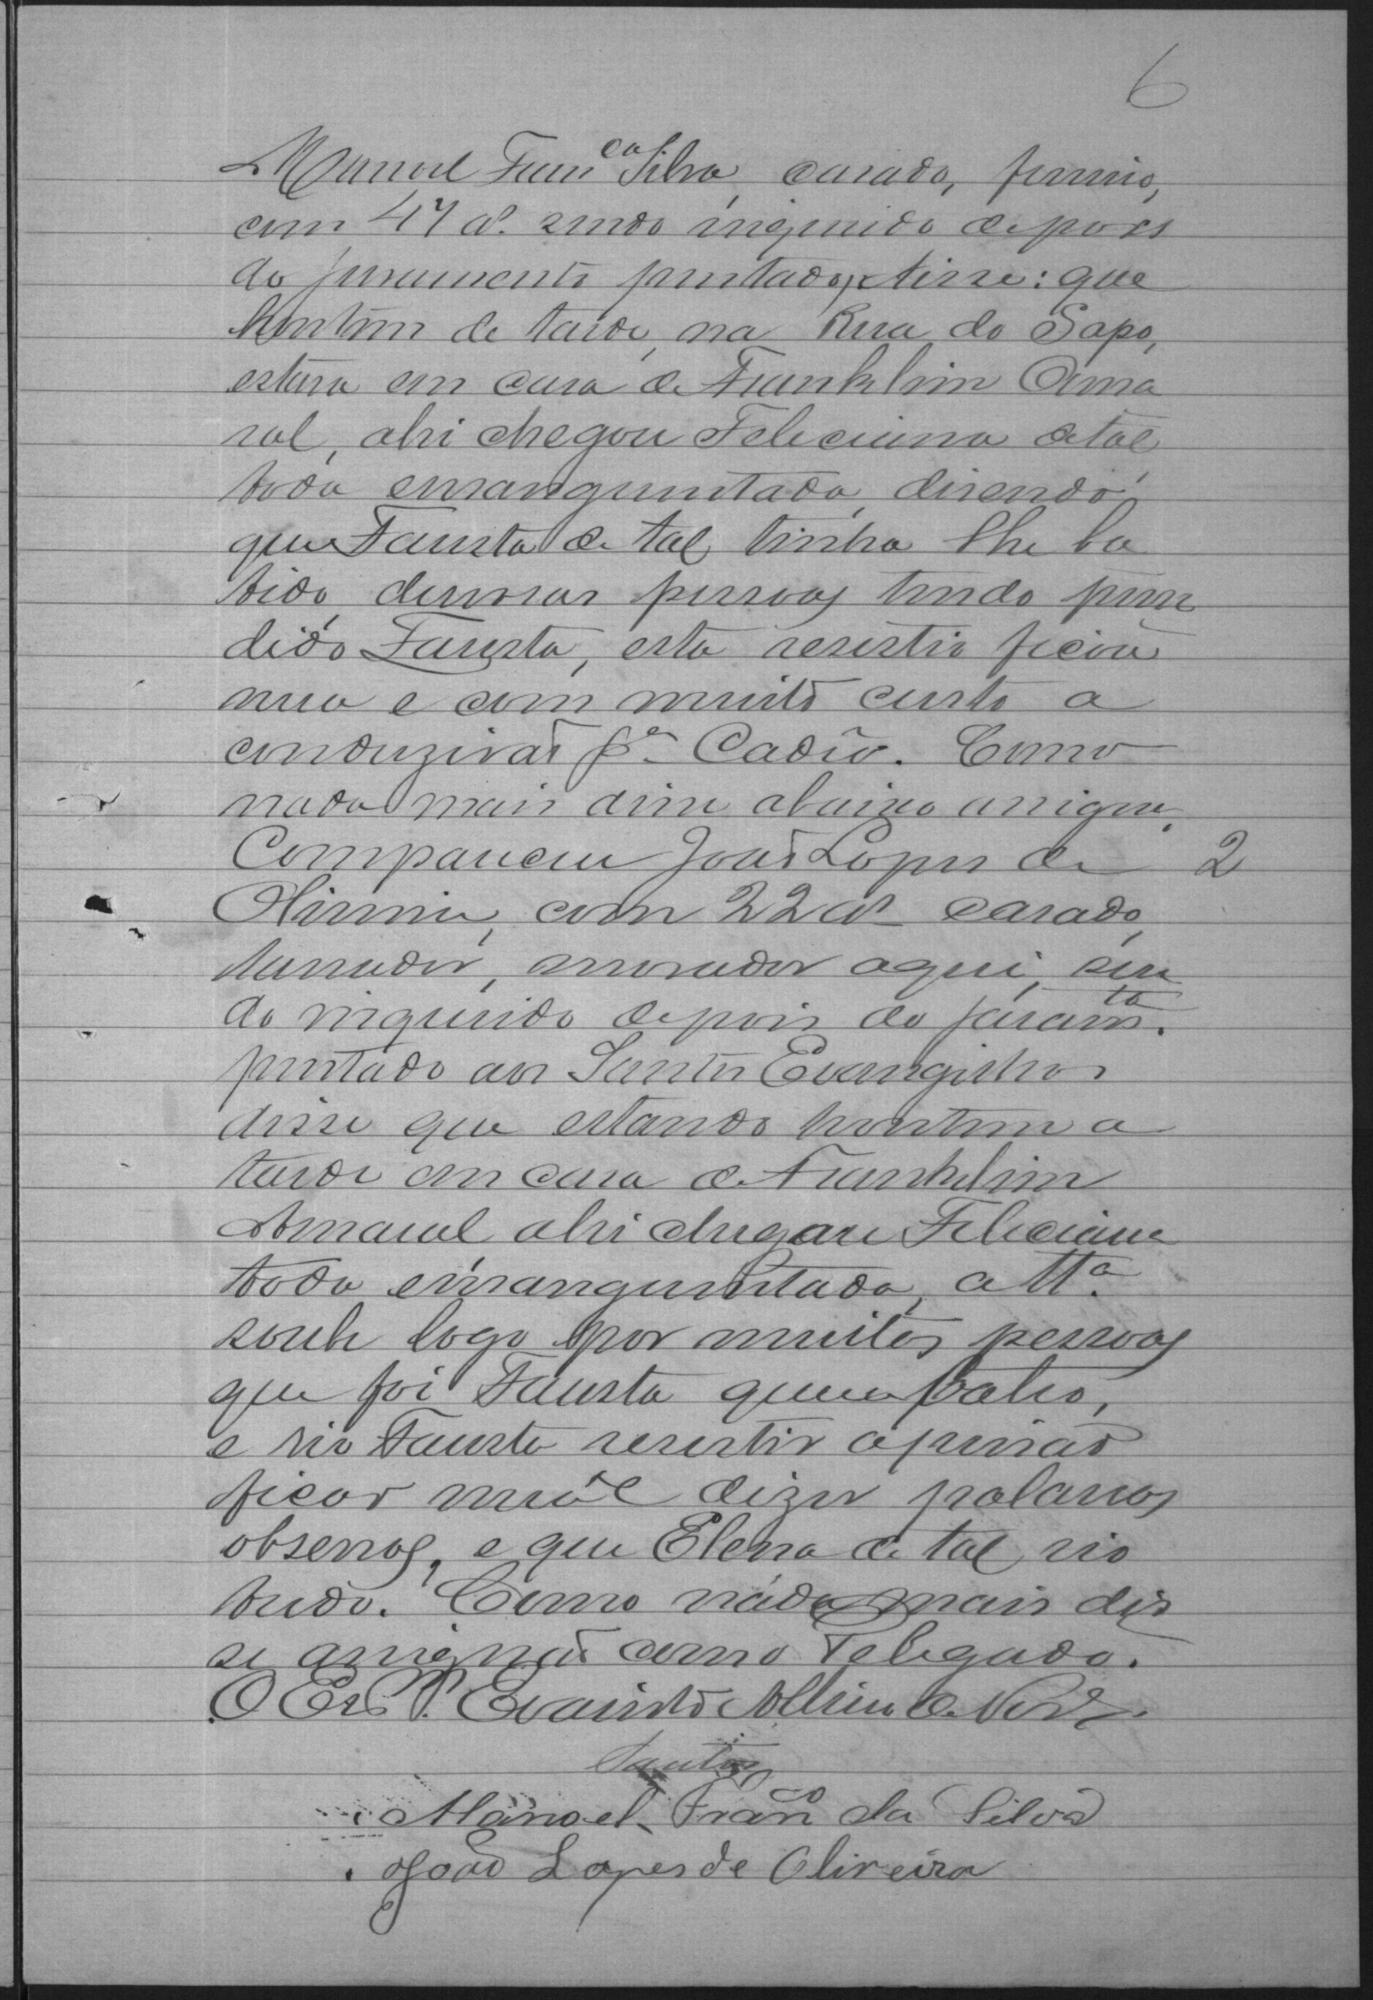 6
Manoel Franco Silva, casado, ferreiro,
com 47 as. sendo inquirido depois
do juramento prestado, disse: que
hontem de tarde, na Rua do Sapo,
estava em casa de Franklin Ama
ral, ahi chegou Feliciana de tal
toda ensanguentada, disendo
que Fausta de tal tinha lhe ba
tido, diversas pessoas tendo pren
dido Fausta, esta resistio ficou
nua e com muito custo a
conduzirão pa. Cadêa. Como
nada mais disse abaixo assigna.
Compareceu João Lopes de 2
Oliveira, com 22 as casado,
morador aqui, sen
do inquirido depois do juramto.
prestado aos Santos Evangelhos
disse que estando hontem a
tarde em casa de Franklin
Amaral ahi chegou Feliciana
toda ensanguentada, a tta.
soube logo por muitas pessoas
que foi Fausta quem bateo,
e vio Fausta resistir a prisão
ficar nua e dizer palavras
obsenas, e que Elena de tal vio
tudo. Como nada mais dis
se assignão como Delegado.
O Es P. Evaristo
Santos
Manoel Franco da Silva
João Lopes de Oliveira